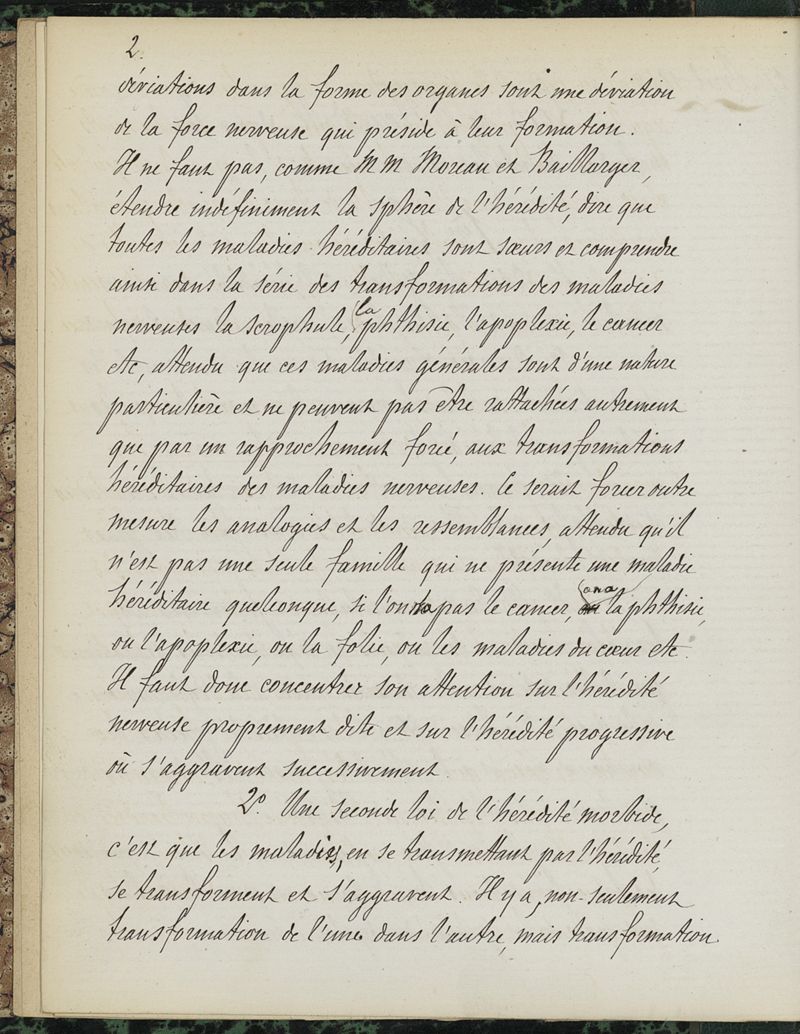 2.
déviations dans la forme des organes sont une déviation
de la force nerveuse qui préside à leur formation.
Il ne faut pas, comme MM Moreau et Baillarger,
étendre indéfiniment la sphère de l'hérédité, dire que
toutes les maladies héréditaires sont sœurs et comprendre
ainsi dans la série des transformations des maladies
nerveuses la scrophule, la phthisie, l'apoplexie, le cancer
etc, attendu que ces maladies générales sont d'une nature
particulière et ne peuvent pas être rattachées autrement
que par un rapprochement forcé, aux transformations
héréditaires des maladies nerveuses. Ce serait forcer outre
mesure les analogies et les ressemblances, attendu qu'il
n'est pas une seule famille qui ne présente une maladie
héréditaire quelconque, si l'on n'a pas le cancer, on a la phthisie,
ou l'apoplexie, ou la folie, ou les maladies du cœur etc.
Il faut donc concentrer son attention sur l'hérédité
nerveuse proprement dite et sur l'hérédité progressive
où s'aggravent successivement.
2º. Une seconde loi de l'hérédité morbide,
c'est que les maladies, en se transmettant par l'hérédité,
se transforment et s'aggravent. Il y a, non-seulement
transformation de l'une dans l'autre, mais transformation